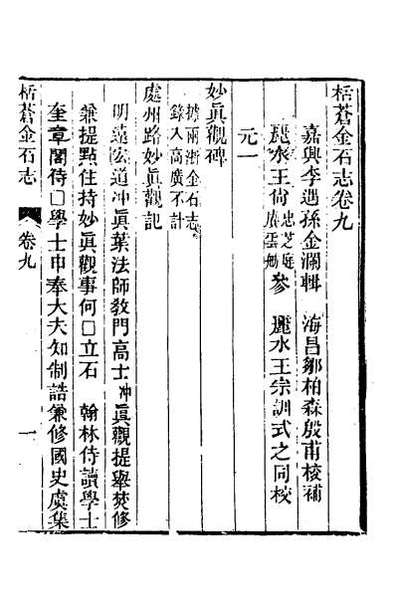 栝蒼金石志卷九
嘉興李遇孫金瀾輯　海昌鄒柏森殷甫校補
麗水王尚忠芝庭賡雲勉參　麗水王宗訓式之同校
元一
妙眞觀碑
據兩浙金石志
錄入高廣不計
處州路妙眞觀記
明遠宏道冲眞葉法師敎門高士冲眞觀提舉焚修
兼提點住持妙眞觀事何□立石　翰林侍讀學士
奎章閣侍□學士中奉大夫知制誥兼修國史虞集
栝蒼金石志
卷九
一